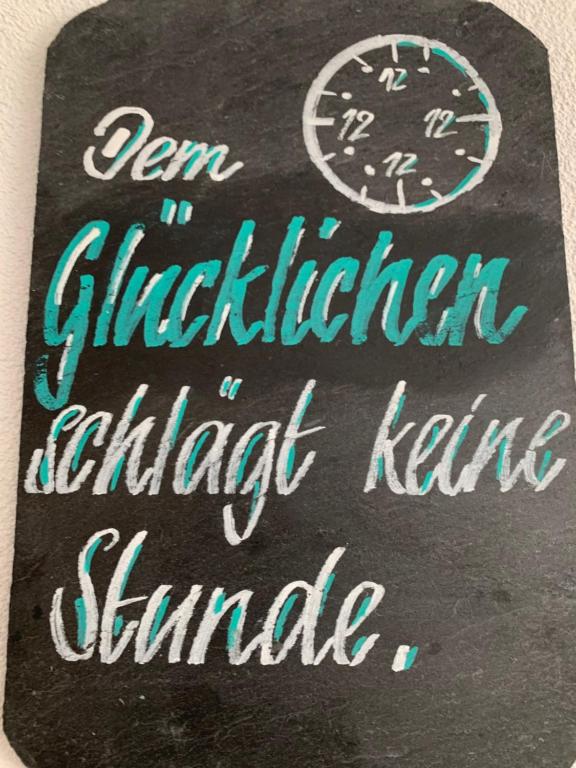 12
12 12
12
Dem
Glücklichen
schlägt keine
Stunde.